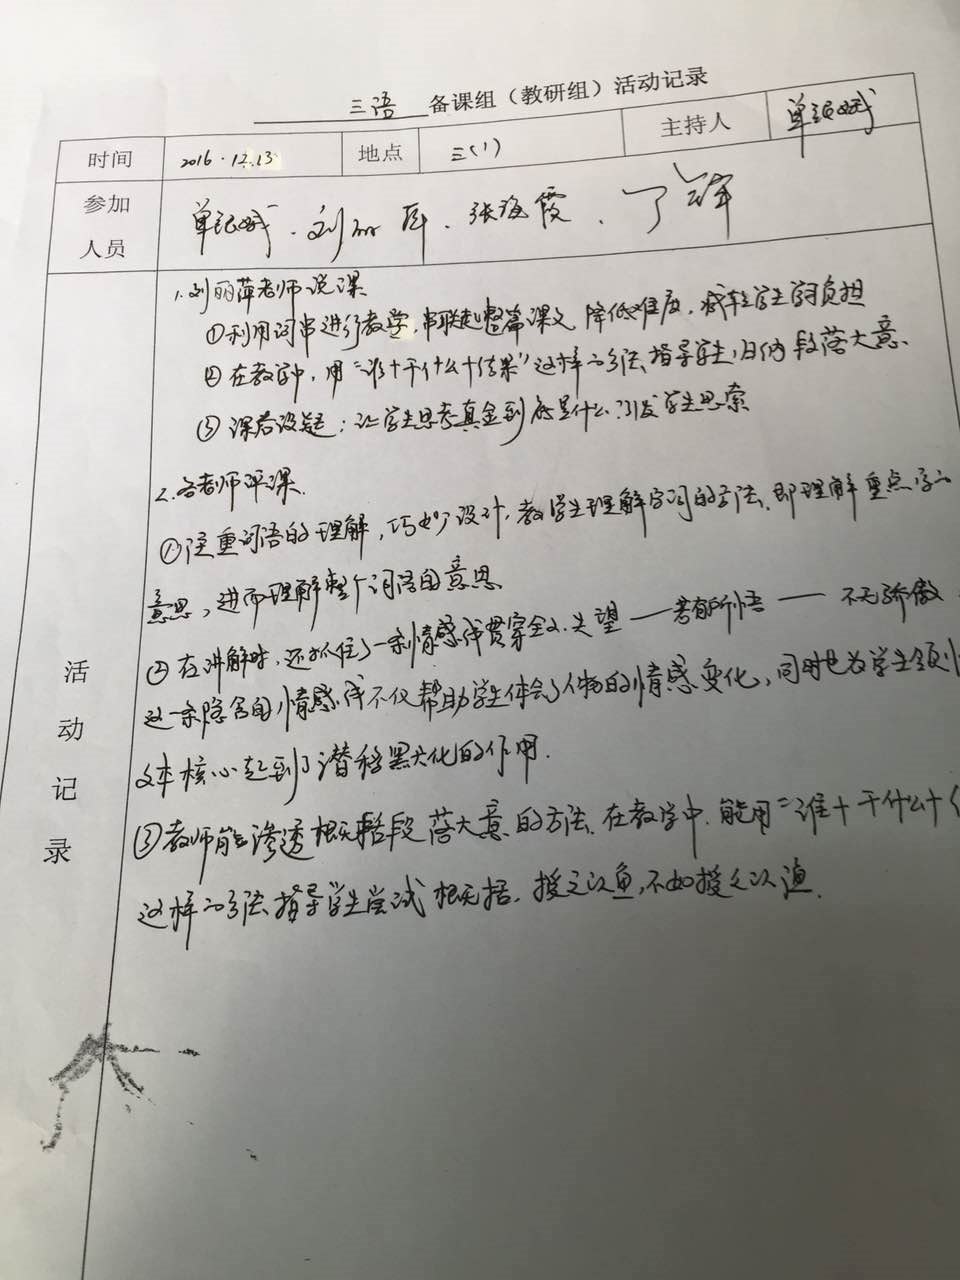 三语 备课组（教研组）活动记录
时间 2016.12.13 地点 三(1) 主持人 单
参加人员 单 . 刘丽萍 . 张海霞 . 丁
活动记录
1.刘丽萍老师说课
①利用词串进行教学,串联起整篇课文 降低难度,减轻学生学习负担
② 在教学中,用“谁+干什么+结果”这样的方法,指导学生归纳段落大意.
③ 课若设疑:让学生思考真金到底是什么?引发学生思索
2.各老师评课.
①注重词语的理解,巧妙设计,教学生理解字词的方法.即理解重点字的
意思,进而理解整个词语的意思
② 在讲解时,还抓住了一条情感线贯穿全文.失望——若有所悟—— 不无骄傲.
这一条隐含的情感线不仅帮助学生体会了人物的情感变化,同时也为学生领
文本核心起到了潜移默化的作用.
③教师能渗透概括段落大意的方法.在教学中.能用“谁+干什么+
这样的方法,指导学生尝试概括.授之以鱼,不如授之以渔.